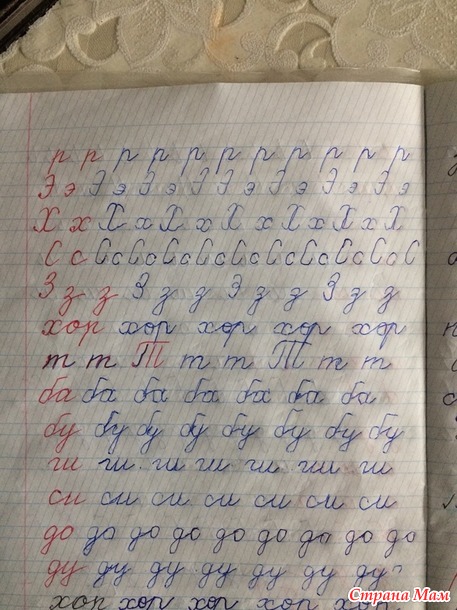 р р р р р р р р р р р
Э э Э э Э э Э э Э э Э э
Х х Х х Х х Х х Х х Х
С с С с С с С с С с С с С с С с С
З з з З з з Э з з З з з
хор хор хор хор хор
т т Т т т Т т т
ба ба ба ба ба ба ба
бу бу бу бу бу бу бу бу
ги ги ги ги ги ги ги
си си си си си си си
до до до до до до до до до
ду ду ду ду ду ду ду ду
хор хор хор хор хор
Страна Мам